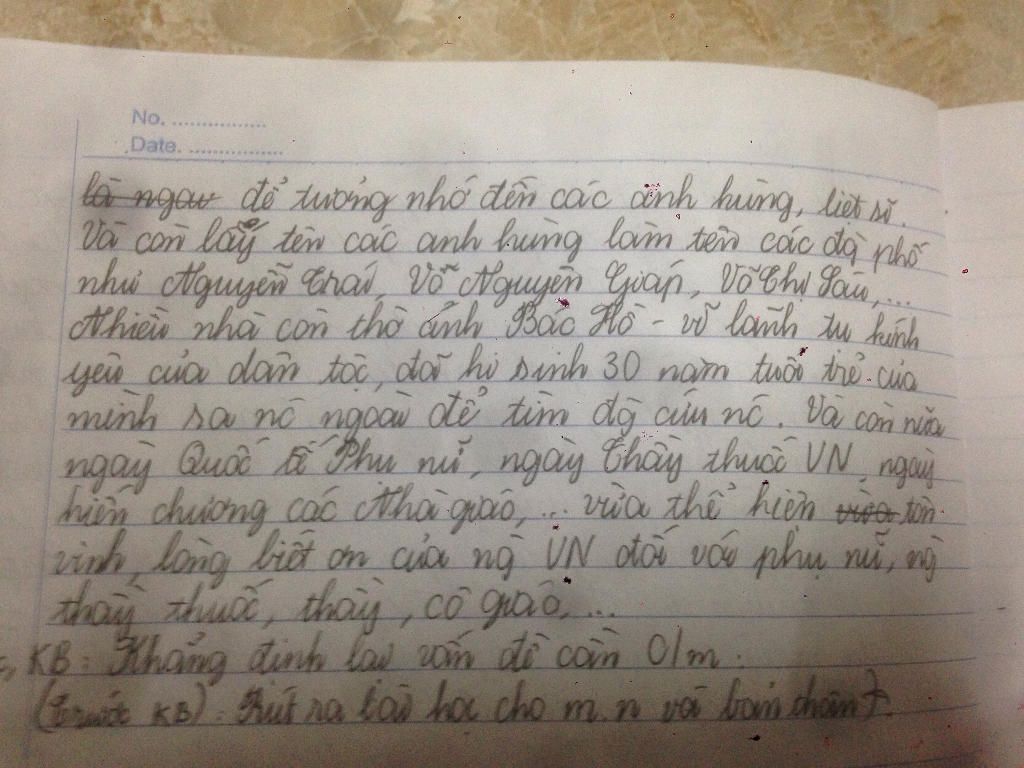 No. ................
Date. ................
là ngày để tưởng nhớ đến các anh hùng, liệt sĩ.
Và còn lấy tên các anh hùng làm tên các đg phố
như Nguyễn Trãi, Võ Nguyên Giáp, Võ Thị Sáu,...
Nhiều nhà còn thờ ảnh Bác Hồ - vị lãnh tụ kính
yêu của dân tộc, đã hi sinh 30 năm tuổi trẻ của
mình ra nc ngoài để tìm đg cứu nc. Và còn nữa
ngày Quốc tế Phụ nữ, ngày Thầy thuốc VN, ngày
hiến chương các Nhà giáo,... vừa thể hiện vừa tôn
vinh, lòng biết ơn của ng VN đối với phụ nữ, ng
thầy thuốc, thầy, cô giáo,...
c, KB: Khẳng định lại vấn đề cần
(Trước KB): Rút ra bài học cho m.n và bản thân